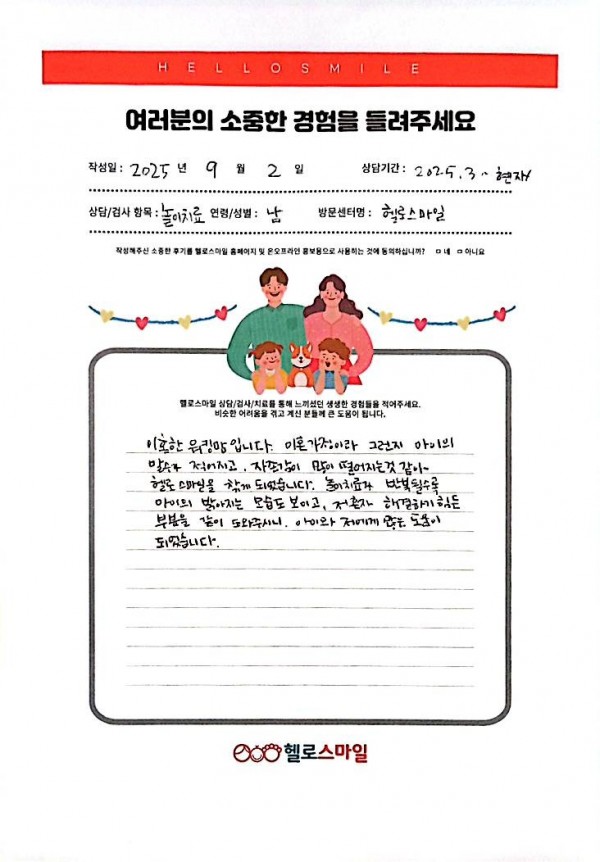 HELLOSMILE
여러분의 소중한 경험을 들려주세요
작성일 : 2025 년 9 월 2 일 상담기간 : 2025.3 ~ 현재
상담/검사 항목 : 놀이치료 연령/성별 : 남 방문센터명 : 헬로스마일
작성해주신 소중한 후기를 헬로스마일 홈페이지 및 온오프라인 홍보용으로 사용하는 것에 동의하십니까? ㅁ 네 ㅁ 아니요
헬로스마일 상담/검사/치료를 통해 느끼셨던 생생한 경험들을 적어주세요.
비슷한 어려움을 겪고 계신 분들께 큰 도움이 됩니다.
이혼한 워킹맘입니다. 이혼가정이라 그런지 아이의
말수가 적어지고, 자존감이 많이 떨어지는것 같아~
헬로스마일을 찾게 되었습니다. 놀이치료가 반복될수록
아이의 밝아지는 모습도 보이고, 저혼자 해결하기 힘든
부분을 같이 도와주시니, 아이와 저에게 많은 도움이
되었습니다.
헬로스마일